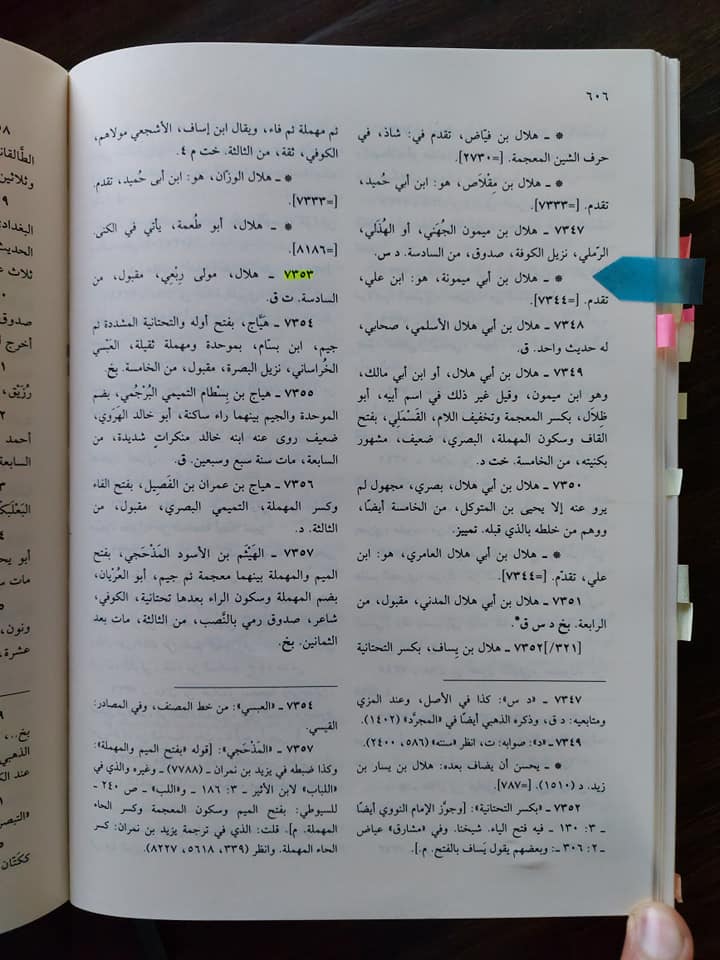 ٦٠٦
* ـ هلال بن فيّاض، تقدم في: شاذ، في
حرف الشين المعجمة. [=٢٧٣٠].
* ـ هلال بن مِقْلاَص، هو: ابن أبي حُميد،
تقدم. [=٧٣٣٣].
٧٣٤٧ ـ هلال بن ميمون الجُهَني، أو الهُذَلي،
الرّملي، نزيل الكوفة، صدوق، من السادسة. د س.
* ـ هلال بن أبي ميمونة، هو: ابن علي،
تقدم. [=٧٣٤٤].
٧٣٤٨ ـ هلال بن أبي هلال الأسلمي، صحابي،
له حديث واحد. ق.
٧٣٤٩ ـ هلال بن أبي هلال، أو ابن أبي مالك،
وهو ابن ميمون، وقيل غير ذلك في اسم أبيه، أبو
ظِلال، بكسر المعجمة وتخفيف اللام، القَسْمَلي، بفتح
القاف وسكون المهملة، البصري، ضعيف، مشهور
بكنيته، من الخامسة. خت د.
٧٣٥٠ ـ هلال بن أبي هلال، بصري، مجهول لم
يرو عنه إلا يحيى بن المتوكل، من الخامسة أيضًا،
ووهم من خلطه بالذي قبله. تمييز.
* ـ هلال بن أبي هلال العامري، هو: ابن
علي، تقدّم. [=٧٣٤٤].
٧٣٥١ ـ هلال بن أبي هلال المدني، مقبول، من
الرابعة. بخ د س ق*.
[٣٢١/]٧٣٥٢ ـ هلال بن يِساف، بكسر التحتانية
٧٣٤٧ ـ «د س»: كذا في الأصل، وعند المزي
ومتابعيه: د ق، وذكره الذهبي أيضًا في «المجرَّد» (١٤٠٢).
٧٣٤٩ ـ «د»: صوابه: ت، انظر «سننه» (٥٨٦، ٢٤٠٠).
* ـ يحسن أن يضاف بعده: هلال بن يسار بن
زيد. د (١٥١٠). [=٧٨٧].
٧٣٥٢ ـ «بكسر التحتانية»: [وجوَّز الإمام النووي أيضًا
ـ ٣: ١٣٠ ـ فيه فتح الياء. شيخنا. وفي «مشارق» عياض
ـ ٢: ٣٠٦ ـ: وبعضهم يقول يَساف بالفتح. م.].
ثم مهملة ثم فاء، ويقال ابن إساف، الأشجعي مولاهم،
الكوفي، ثقة، من الثالثة. خت م ٤.
* ـ هلال الوزّان، هو: ابن أبى حُميد، تقدم.
[=٧٣٣٣].
* ـ هلال، أبو طُعمة، يأتي في الكنى.
[=٨١٨٦].
٧٣٥٣ ـ هلال، مولى رِبْعِي، مقبول، من
السادسة. ت ق.
٧٣٥٤ ـ هَيَّاج، بفتح أوله والتحتانية المشددة ثم
جيم، ابن بسّام، بموحدة ومهملة ثقيلة، العَبْسي
الخُراساني، نزيل البصرة، مقبول، من الخامسة. بخ.
٧٣٥٥ ـ هياج بن بِسْطام التميمي البُرْجُمي، بضم
الموحدة والجيم بينهما راء ساكنة، أبو خالد الهَرَوي،
ضعيف روى عنه ابنه خالد منكراتٍ شديدة، من
السابعة، مات سنة سبع وسبعين. ق.
٧٣٥٦ ـ هياج بن عمران بن الفَصِيل، بفتح الفاء
وكسر المهملة، التميمي البصري، مقبول، من
الثالثة. د.
٧٣٥٧ ـ الهَيْثم بن الأسود المَذْحَجي، بفتح
الميم والمهملة بينهما معجمة ثم جيم، أبو العُرْيان،
بضم المهملة وسكون الراء بعدها تحتانية، الكوفي،
شاعر، صدوق رمي بالنَّصب، من الثالثة، مات بعد
الثمانين. بخ.
٧٣٥٤ ـ «العبسي»: من خط المصنف، وفي المصادر:
القيسي.
٧٣٥٧ ـ «المَذْحَجي»: [قوله «بفتح الميم والمهملة»:
وكذا ضبطه في يزيد بن نمران ـ (٧٧٨٨) ـ وغيره والذي في
«اللباب» لابن الأثير ـ ٣: ١٨٦ ـ و«اللب» ـ ص ٢٤٠ ـ
للسيوطي: بفتح الميم وسكون المعجمة وكسر الحاء
المهملة. م]. قلت: الذي في ترجمة يزيد بن نمران: كسر
الحاء المهملة. وانظر (٣٣٩، ٥٦١٨، ٨٢٢٧).